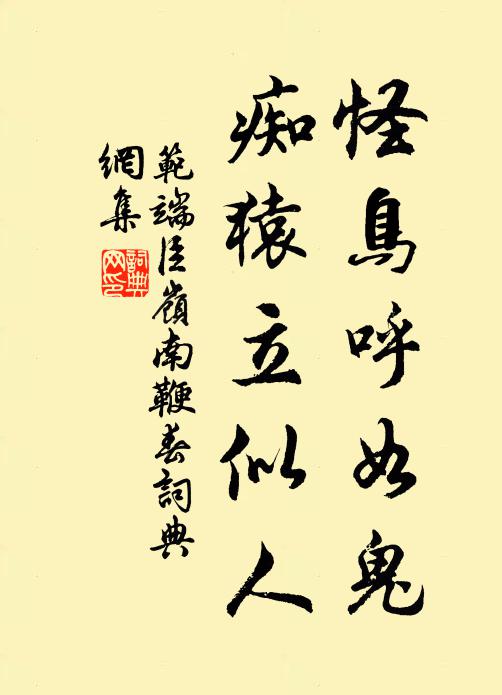 怪鳥呼如鬼
痴猿立似人
範端臣嶺南鞭春詞典
網集
詞典
网印